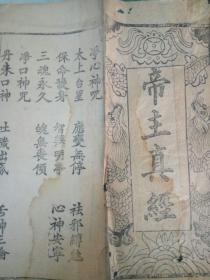 帝主真經
淨心神咒
太上台星 應變無停 祛邪縛魅
保命護身 智慧明淨 心神安寧
三魂永久 魄無喪傾
淨口神咒
丹朱口神 吐穢 舌神